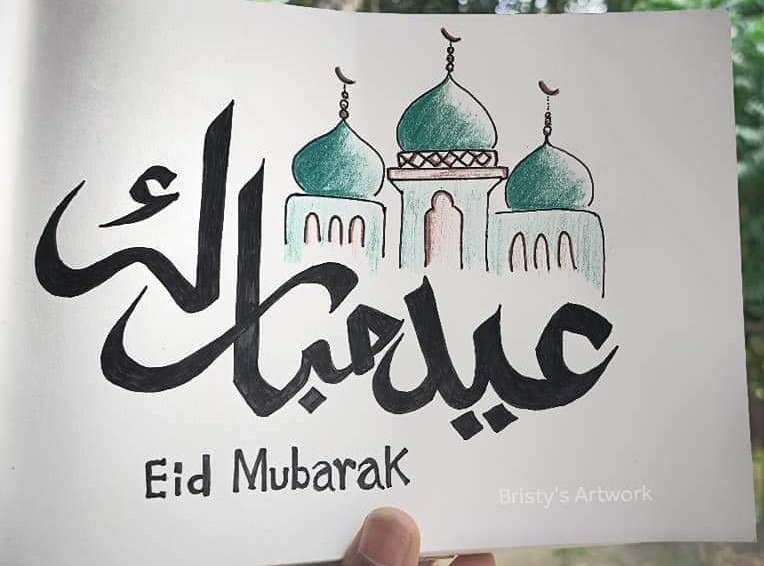 عيد مبارك
Eid Mubarak
Bristy's Artwork